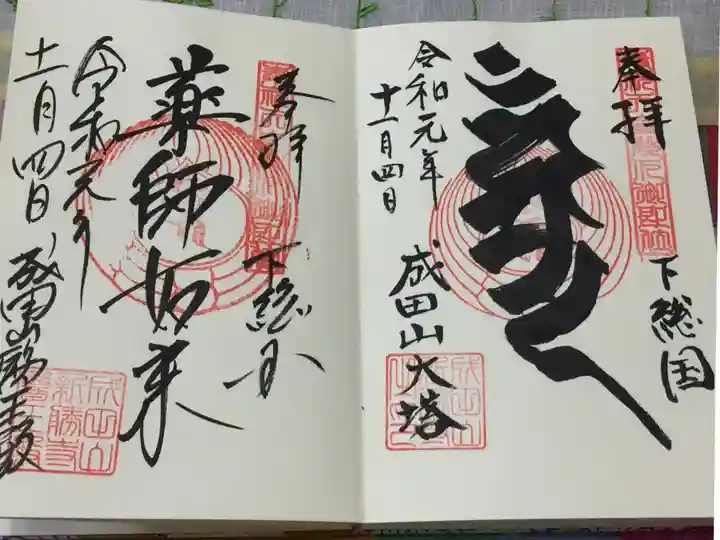 奉拝
下総国
令和元年
十一月四日
成田山大塔
奉拝
下総国
薬師如来
令和元年
十一月四日
成田山
成田山
新勝寺